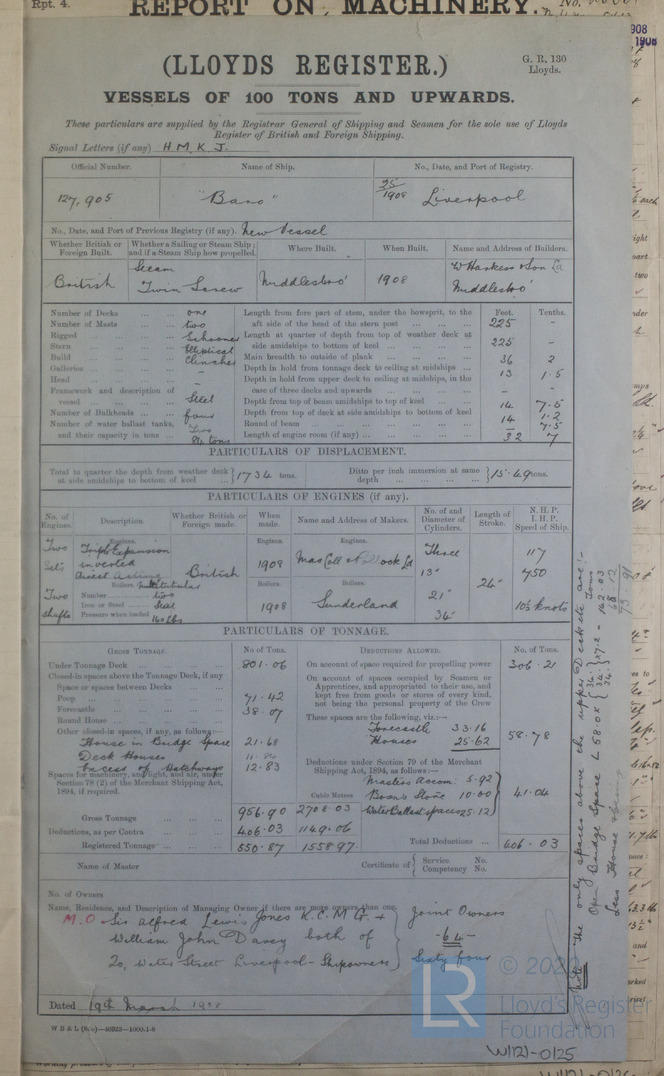 Rpt. 4.
REPORT ON MACHINERY.
No.
908
1908
(LLOYDS REGISTER.)
G. R. 130
Lloyds.
VESSELS OF 100 TONS AND UPWARDS.
These particulars are supplied by the Registrar General of Shipping and Seamen for the sole use of Lloyds
Register of British and Foreign Shipping.
Signal Letters (if any) H.M.K.J.
Official Number. Name of Ship. No., Date, and Port of Registry.
127,905 "Baro" 25/1908 Liverpool
No., Date, and Port of Previous Registry (if any). New Vessel
Whether British or Foreign Built. Whether a Sailing or Steam Ship; and if a Steam Ship how propelled. Where Built. When Built. Name and Address of Builders.
British Steam Twin Screw Middlesbro' 1908 W Harkess & Son Ld Middlesbro'
Number of Decks ... ... one
Number of Masts ... ... two
Rigged ... ... Schooner
Stern ... ... Elliptical
Build ... ... Clincher
Galleries ... ... -
Head ... ... -
Framework and description of vessel ... ... Steel
Number of Bulkheads ... four
Number of water ballast tanks, and their capacity in tons ... Two 84 tons
Feet. Tenths.
Length from fore part of stem, under the bowsprit, to the aft side of the head of the stern post ... 225 -
Length at quarter of depth from top of weather deck at side amidships to bottom of keel ... 225 -
Main breadth to outside of plank ... 36 2
Depth in hold from tonnage deck to ceiling at midships ... 13 1.5
Depth in hold from upper deck to ceiling at midships, in the case of three decks and upwards ... - -
Depth from top of beam amidships to top of keel ... 14 7.5
Depth from top of deck at side amidships to bottom of keel 14 1.2
Round of beam ... - 7.5
Length of engine room (if any) ... 32 7
PARTICULARS OF DISPLACEMENT.
Total to quarter the depth from weather deck at side amidships to bottom of keel ... 1734 tons.
Ditto per inch immersion at same depth ... 15.49 tons.
PARTICULARS OF ENGINES (if any).
No. of Engines. Description. Whether British or Foreign made. When made. Name and Address of Makers. No. of and Diameter of Cylinders. Length of Stroke. N. H. P. I. H. P. Speed of Ship.
Engines. Engines. Engines.
Two Sets Triple Expansion inverted direct acting British 1908 Three 117
13" 750
Boilers, multitubular Boilers. Boilers. 24"
Two shafts Number two 21"
Iron or Steel Steel 1908 Sunderland 10½ knots
Pressure when loaded 160 lbs 34"
PARTICULARS OF TONNAGE.
GROSS TONNAGE. No of Tons. DEDUCTIONS ALLOWED. No. of Tons.
Under Tonnage Deck ... 801.06
On account of space required for propelling power 306.21
Closed-in spaces above the Tonnage Deck, if any
Space or spaces between Decks ...
Poop ... 71.42
Forecastle ... 38.07
Round House ...
Other closed-in spaces, if any, as follows—
House in Bridge Space 21.68
Deck Houses
Excess of Hatchways 12.83
Spaces for machinery, and light, and air, under Section 78 (2) of the Merchant Shipping Act, 1894, if required.
On account of spaces occupied by Seamen or Apprentices, and appropriated to their use, and kept free from goods or stores of every kind, not being the personal property of the Crew
These spaces are the following, viz.:—
Forecastle 33.16
Houses 25.62
58.78
Deductions under Section 79 of the Merchant Shipping Act, 1894, as follows:—
Masters Accom. 5.92
Bosn's Store 10.00
Water Ballast spaces 25.12
41.04
Cubic Metres
Gross Tonnage 956.90 2708.03
Deductions, as per Contra 406.03 1149.06
Registered Tonnage ... 550.87 1558.97
Total Deductions ... 406.03
Name of Master
Certificate of { Service No.
Competency No.
No. of Owners
Name, Residence, and Description of Managing Owner if there are more owners than one.
M.O Sir Alfred Lewis Jones K.C.M.G. +
William John Davey both of
20, Water Street Liverpool - Shipowners
Joint Owners
-64-
Sixty four
Dated 19th March 1908
W B & L (8/o)—40323—1000-1-8
Note The only spaces above the upper Deck etc are:-
Open Bridge Space
Less House
© 202
Lloyd's Register
Foundation
LR
W1121-0125